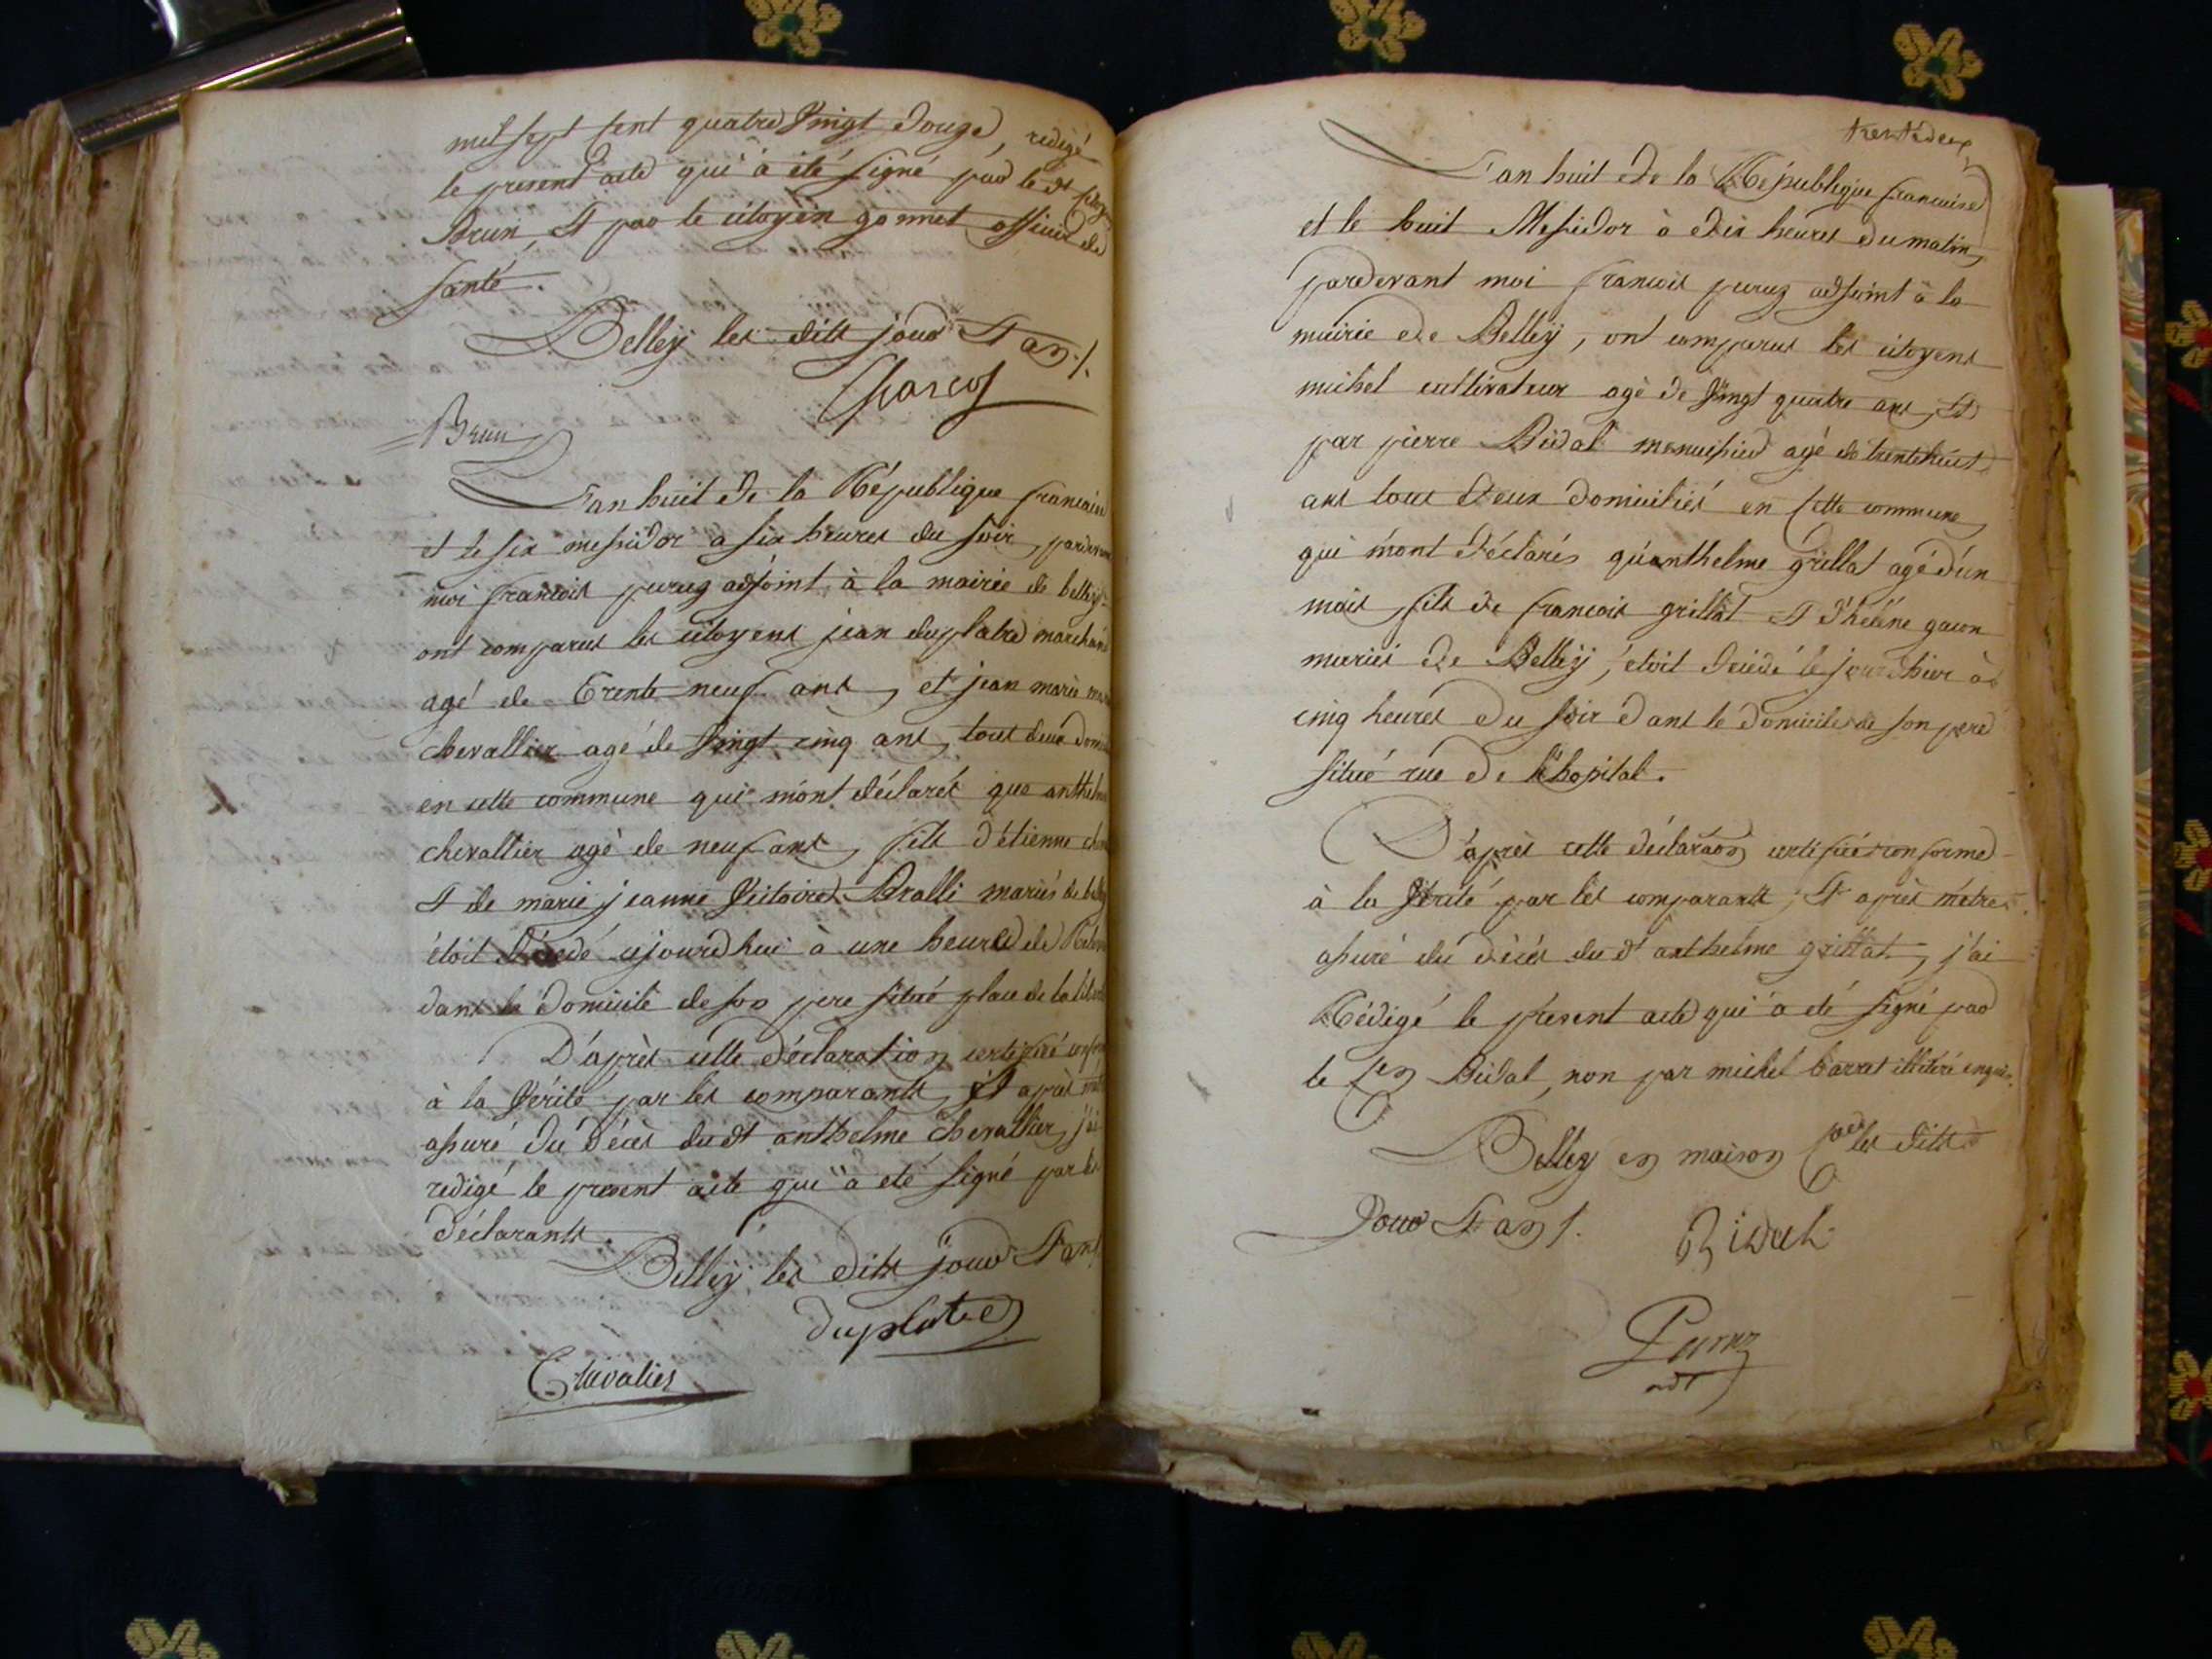 mil sept cent quatre vingt douze, redigé
le present acte qui a été signé par le dt
Brun, et par le citoyen gonnet officier de
santé.
Belley les dits jour et an.
Brun
L'an huit de la République francaise
et le six messidor a six heures du soir, pardevant
moi francois puruz adjoint à la mairie de belley
ont comparus les citoyens jean duplatre marchand
agé de trente neuf ans, et jean marie
chevallier agé de vingt cinq ans, tous deux
en cette commune qui m'ont déclarés que anthelme
chevallier agé de neuf ans, fils d'étienne
et de marie jeanne victoire Bralli mariés de
étoit décedé aujourdhui à une heure de
dans le domicile de son pere situé place de la
D'après cette déclaration certifiée
à la vérité par les comparants, et après
assuré du décès du dt anthelme chevallier, j'ai
redigé le present acte qui a eté signé par les
déclarants.
Belley les dits jour et an
duplatre
Chevalier
trente deux
L'an huit de la République francaise
et le huit Messidor à dix heures du matin,
pardevant moi francois puruz adjoint à la
mairie de Belley, ont comparus les citoyens
michel cultivateur agé de vingt quatre ans, et
par pierre Bidal menuisier agé de trente huit
ans tous deux domiciliés en cette commune,
qui m'ont déclarés qu'anthelme grillat agé d'un
mois, fils de francois grillat et d'héléne gacon
mariés de Belley, étoit décédé le jour d'hier à
cinq heures du soir dans le domicile de son pere
situé rue de l'hopital.
D'après cette déclaraon certifiée conforme
à la vérité par les comparants, et après m'etre
assuré du décès du dt anthelme grillat, j'ai
Rédigé le présent acte qui a eté signé par
le Bidal, non par michel barret illitéré
Belley en maison les dits
Jour et an.
Bidal
Puruz
adt